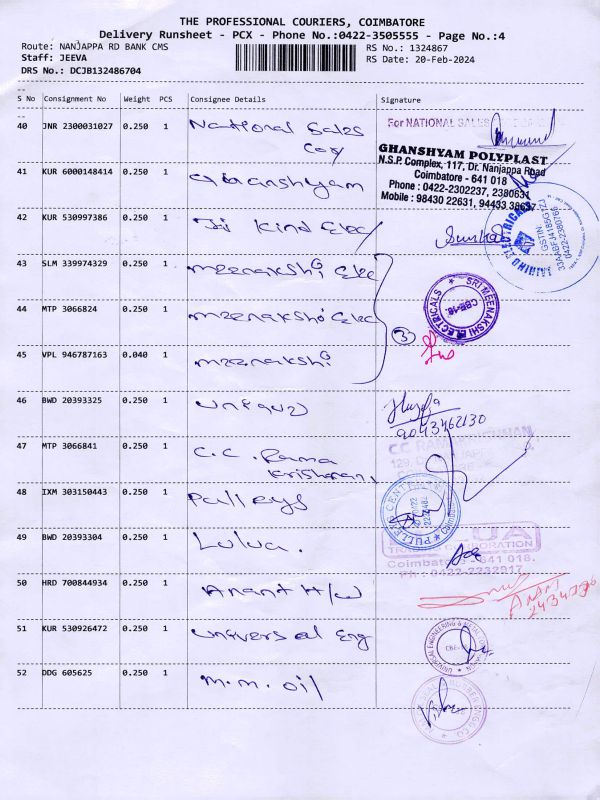 THE PROFESSIONAL COURIERS, COIMBATORE
Delivery Runsheet - PCX - Phone No.:0422-3505555 - Page No.:4
Route: NANJAPPA RD BANK CMS
RS No.: 1324867
Staff: JEEVA
RS Date: 20-Feb-2024
DRS No.: DCJB132486704
S No Consignment No Weight PCS Consignee Details Signature
40 JNR 2300031027 0.250 1 National Sales
Corp
For NATIONAL SALES
41 KUR 6000148414 0.250 1 Ghanshyam
GHANSHYAM POLYPLAST
N.S.P. Complex, 117, Dr. Nanjappa Road
Coimbatore - 641 018
Phone : 0422-2302237, 2380631
Mobile : 98430 22631, 94433 38637
42 KUR 530997386 0.250 1 Jai Kind Elec
43 SLM 339974329 0.250 1 meenakshi Elec
44 MTP 3066824 0.250 1 meenakshi Elec
SRI MEENAKSHI ELECTRICALS
CBE-18.
3
45 VPL 946787163 0.040 1 meenakshi
46 BWD 20393325 0.250 1 unique
9043462130
47 MTP 3066841 0.250 1 C.C. Rama
Krishnan
C.C. RAMAKRISHNAN
48 IXM 303150443 0.250 1 Pulleys
49 BWD 20393304 0.250 1 Lulua.
CORPORATION
Coimbatore - 641 018.
Ph : 0422-2332917
50 HRD 700844934 0.250 1 Anant H/W
ANANT
51 KUR 530926472 0.250 1 universal Eng
52 DDG 605625 0.250 1 m.m. oil